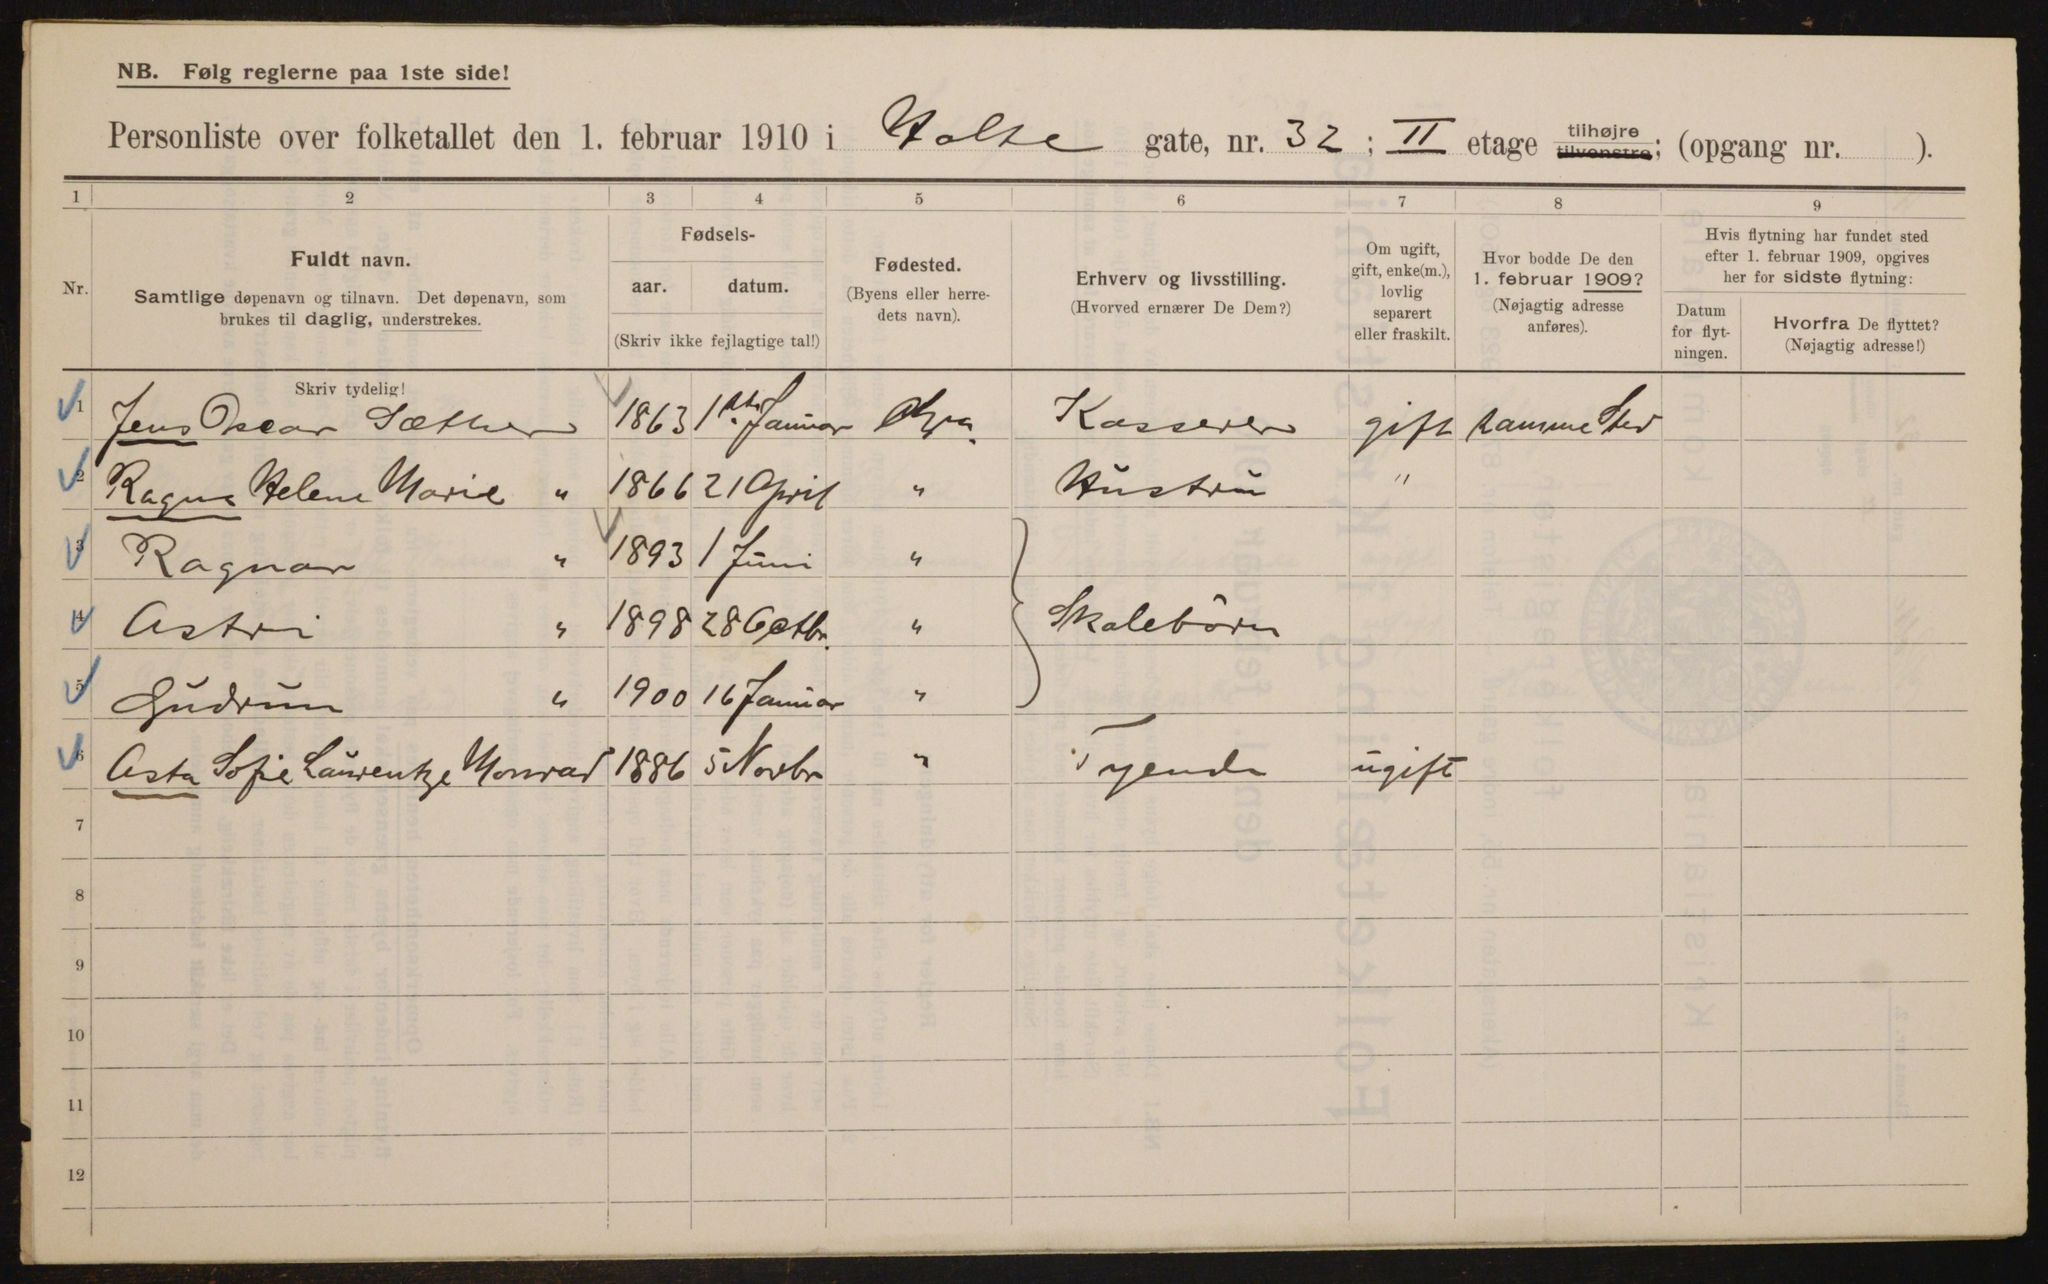 NB. Følg reglerne paa 1ste side!
Personliste over folketallet den 1. februar 1910 i Holte gate, nr. 32 ; II etage tilhøjre tilvenstre; (opgang nr. ).
1 2 3 4 5 6 7 8 9
Nr.
Fuldt navn.
Samtlige døpenavn og tilnavn. Det døpenavn, som
brukes til daglig, understrekes.
Skriv tydelig!
Fødsels-
aar. datum.
(Skriv ikke fejlagtige tal!)
Fødested.
(Byens eller herre-
dets navn).
Erhverv og livsstilling.
(Hvorved ernærer De Dem?)
Om ugift,
gift, enke(m.),
lovlig
separert
eller fraskilt.
Hvor bodde De den
1. februar 1909?
(Nøjagtig adresse
anføres).
Hvis flytning har fundet sted
efter 1. februar 1909, opgives
her for sidste flytning:
Datum
for flyt-
ningen.
Hvorfra De flyttet?
(Nøjagtig adresse!)
1 Jens Oscar Sæther 1863 1ste Januar Kra. Kasserer gift samme Sted
2 Ragna Helene Marie " 1866 21 April " Hustru "
3 Ragnar " 1893 1 Juni "
4 Astri " 1898 28 Octbr. " Skolebörn
5 Gudrun " 1900 16 Januar "
6 Asta Sofie Laurentze Monrad 1886 5 Novbr " Tyende ugift
7
8
9
10
11
12